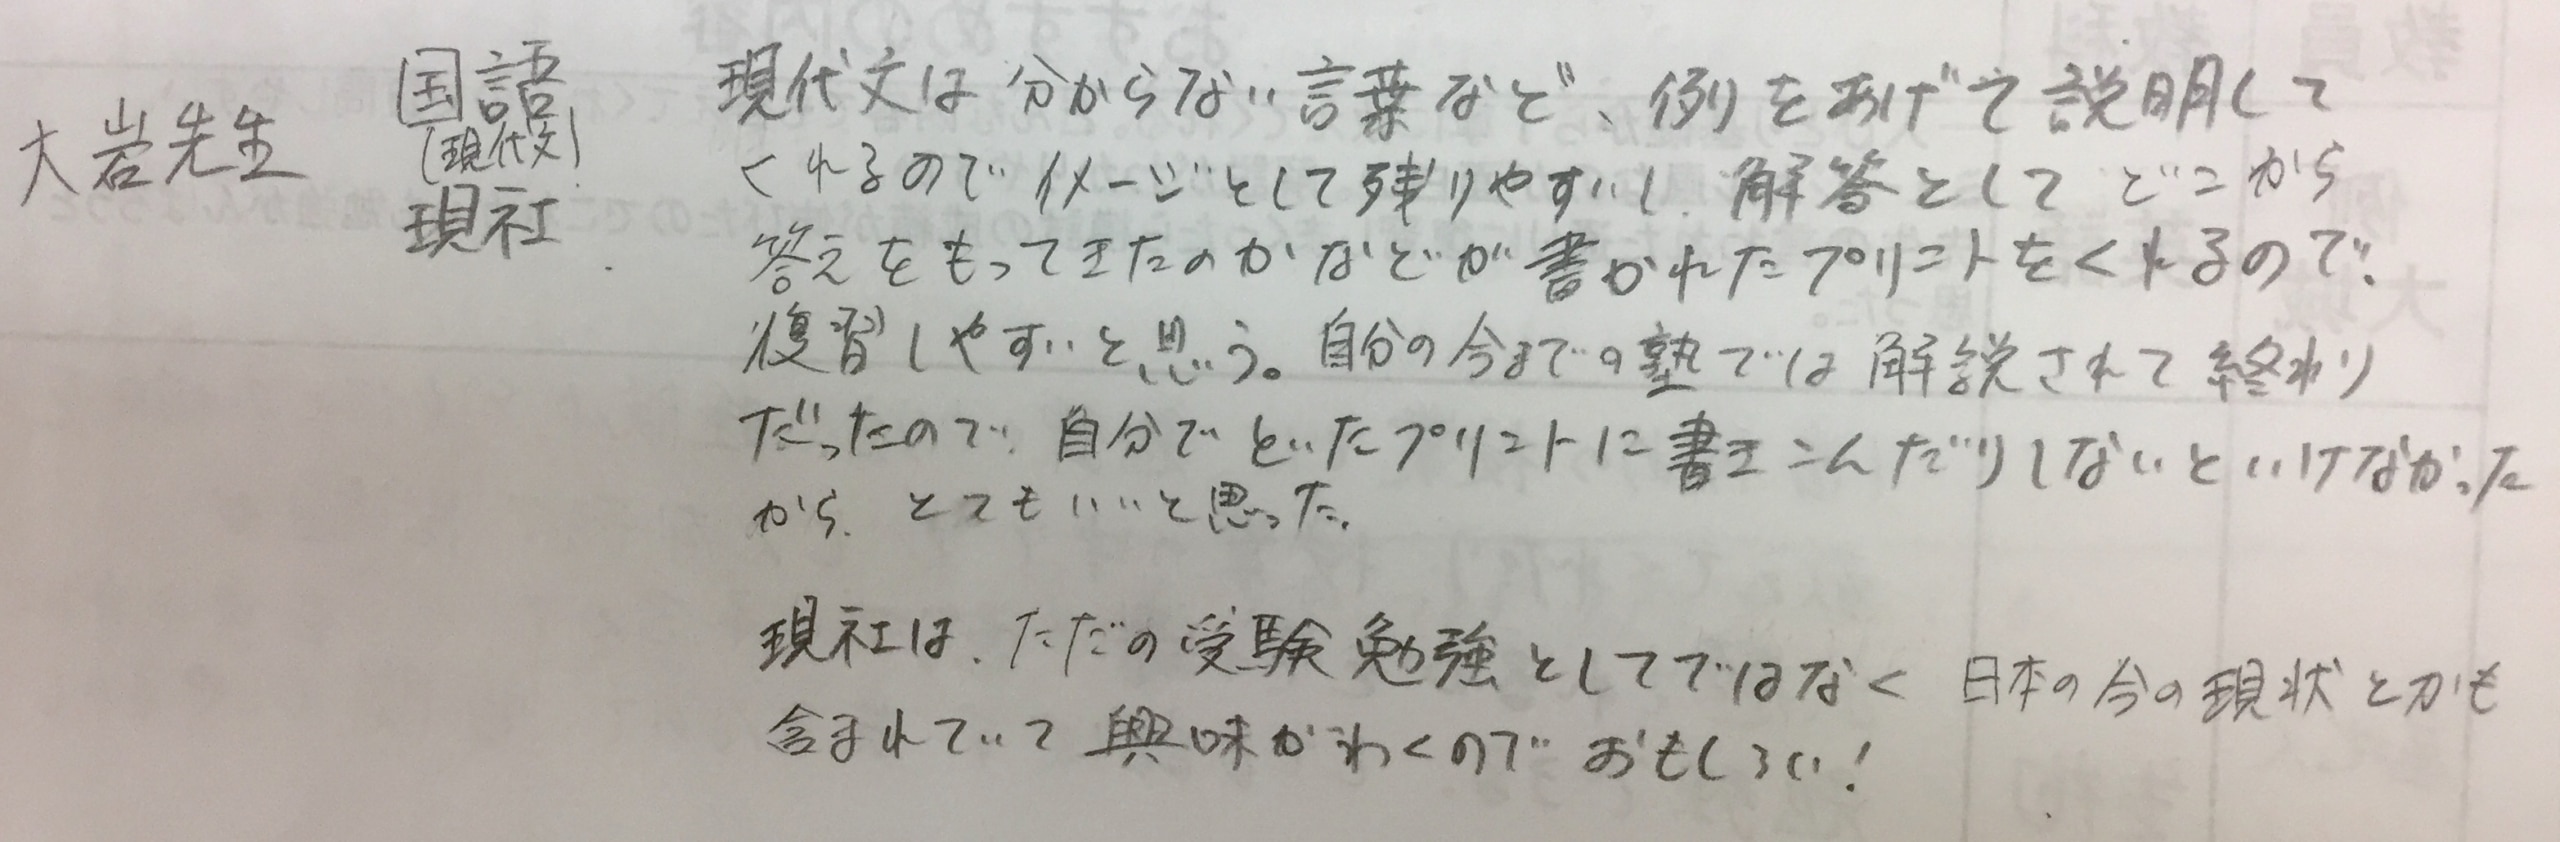 大岩先生
国語
(現代文)
現社
現代文は分からない言葉など、例をあげて説明して
くれるのでイメージとして残りやすいし、解答としてどこから
答えをもってきたのかなどが書かれたプリントをくれるので、
復習しやすいと思う。自分の今までの塾では解説されて終わり
だったので、自分でといたプリントに書きこんだりしないといけなかった
から、とてもいいと思った。
現社は、ただの受験勉強としてではなく日本の今の現状とかも
含まれていて興味がわくのでおもしろい!